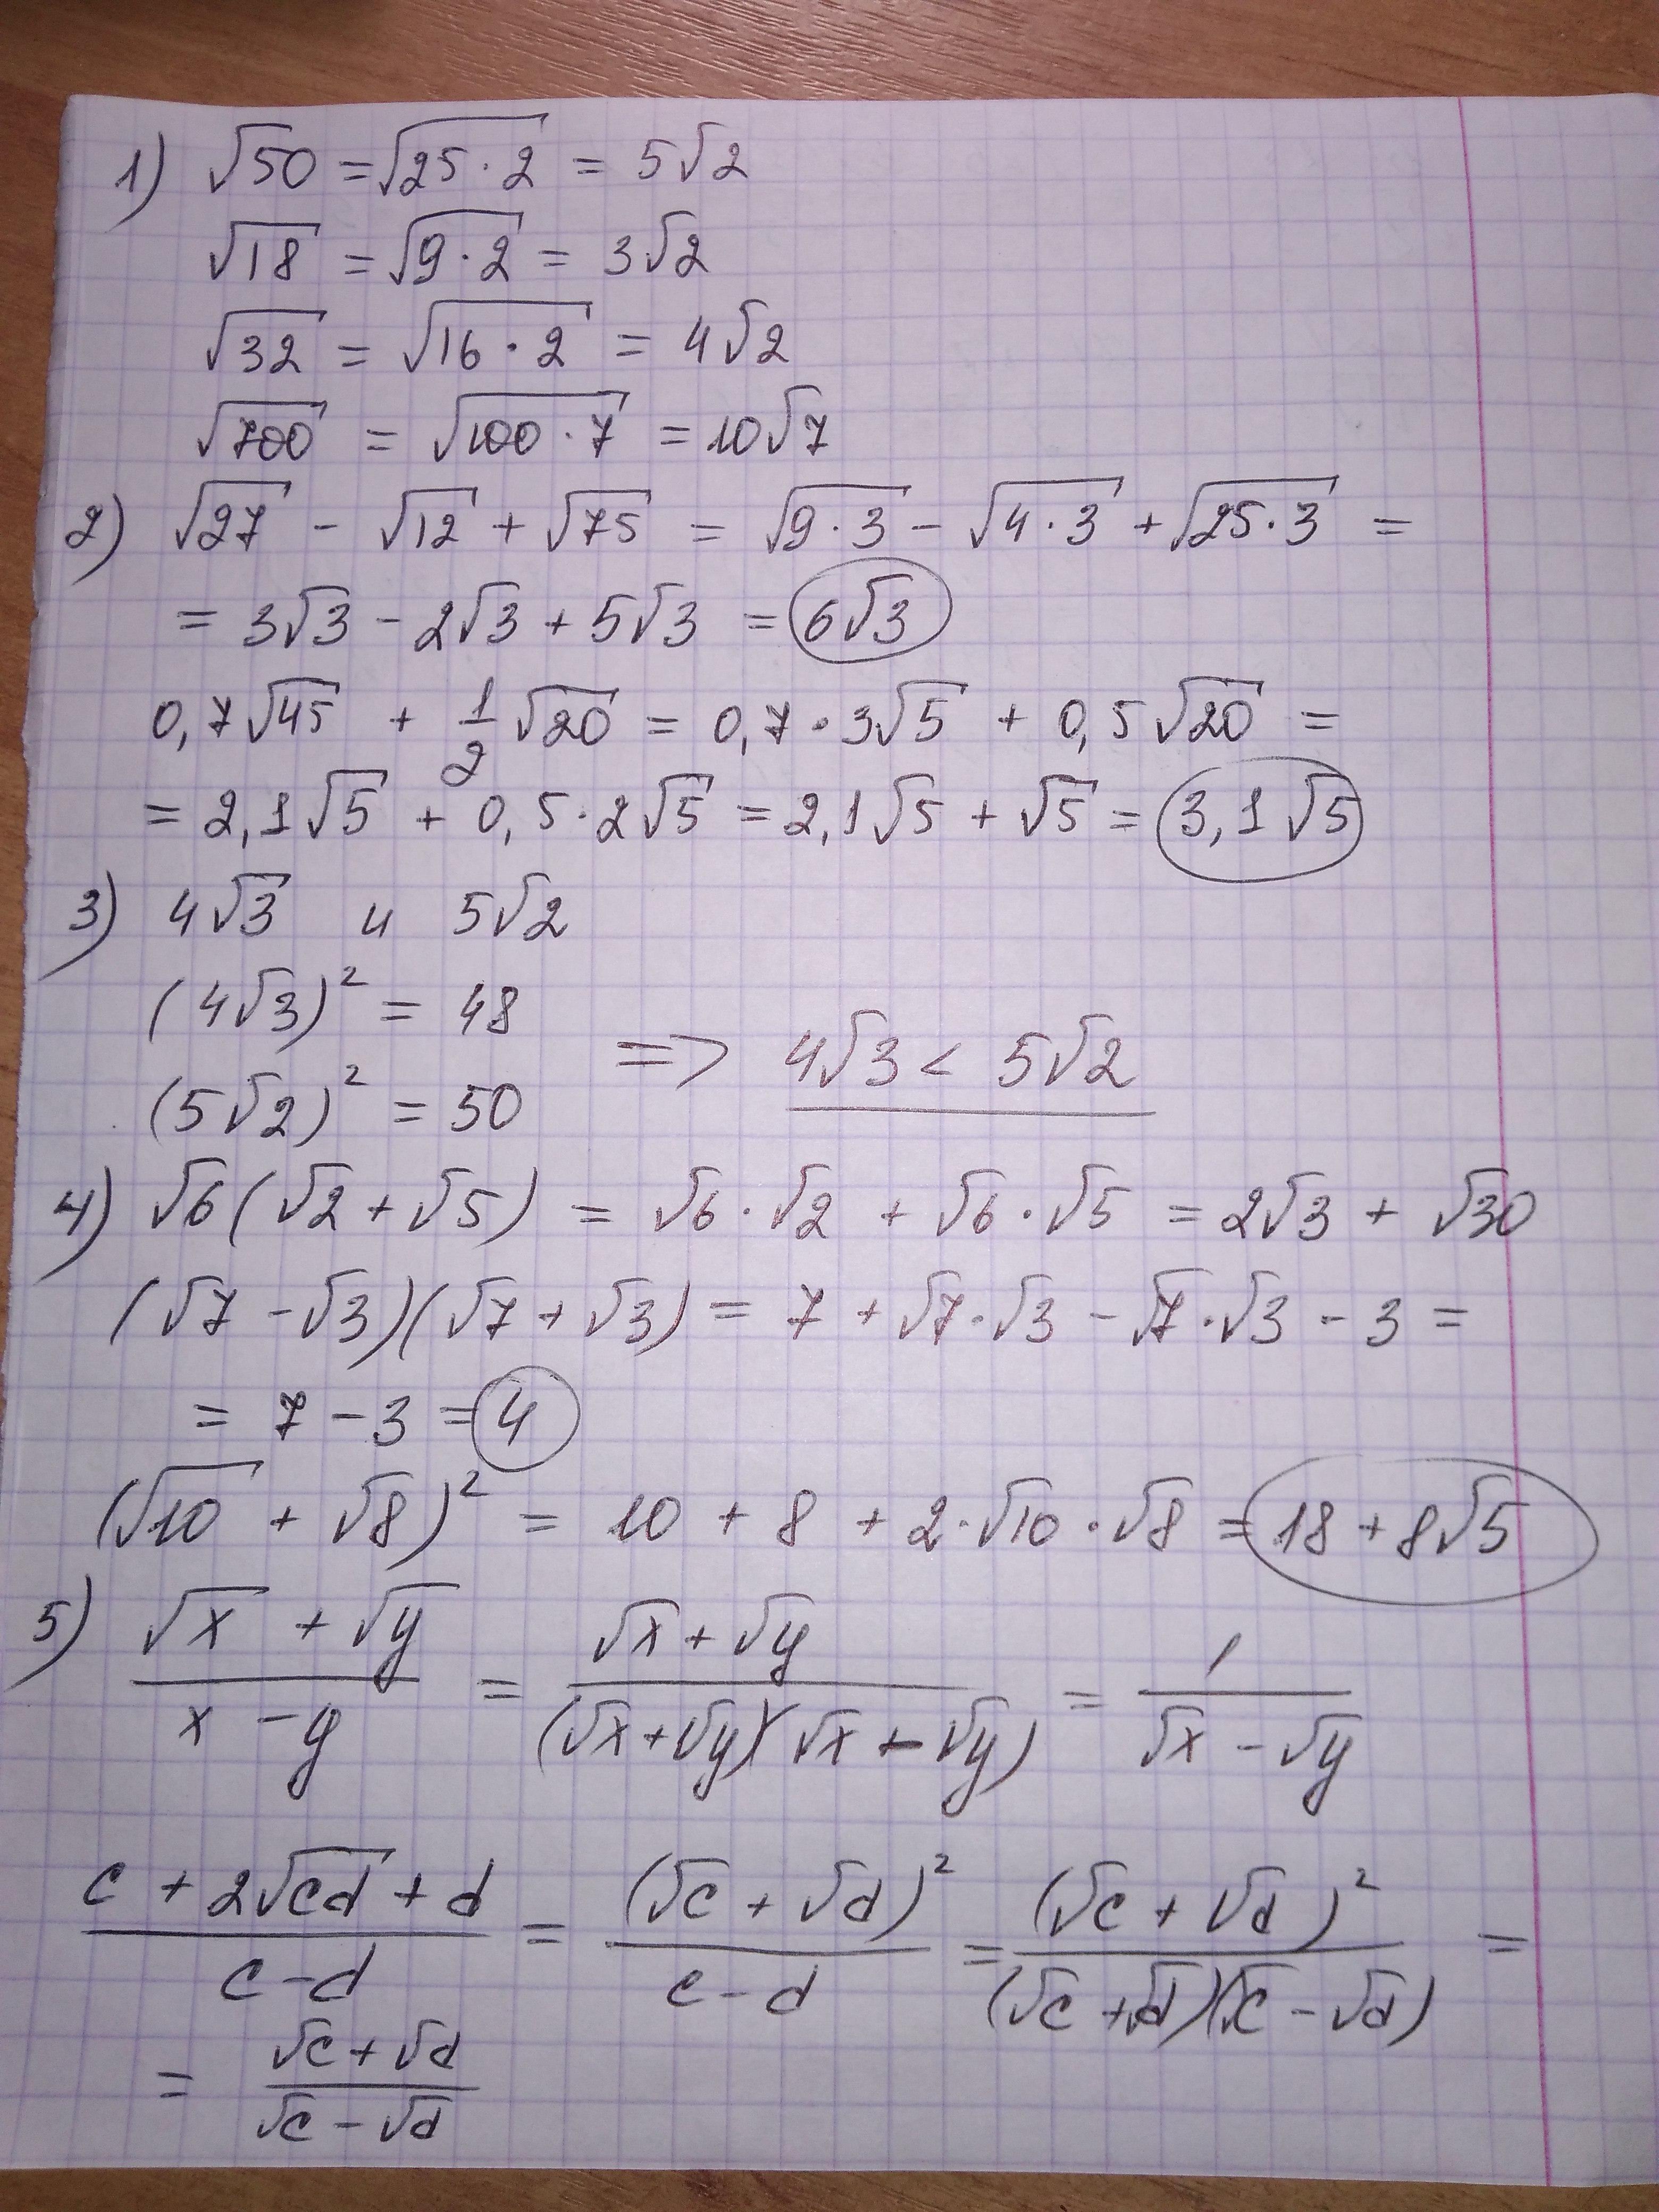 1) √50 = √25·2 = 5√2
√18 = √9·2 = 3√2
√32 = √16·2 = 4√2
√700 = √100·7 = 10√7
2) √27 - √12 + √75 = √9·3 - √4·3 + √25·3 =
= 3√3 - 2√3 + 5√3 = 6√3
0,7√45 + 1/2 √20 = 0,7·3√5 + 0,5√20 =
= 2,1√5 + 0,5·2√5 = 2,1√5 + √5 = 3,1√5
3) 4√3 и 5√2
(4√3)² = 48
=> 4√3 < 5√2
(5√2)² = 50
4) √6(√2 + √5) = √6·√2 + √6·√5 = 2√3 + √30
(√7 - √3)(√7 + √3) = 7 + √7·√3 - √7·√3 - 3 =
= 7 - 3 = 4
(√10 + √8)² = 10 + 8 + 2·√10·√8 = 18 + 8√5
5) (√x + √y)/(x - y) = (√x + √y)/((√x + √y)(√x - √y)) = 1/(√x - √y)
(c + 2√cd + d)/(c - d) = (√c + √d)²/(c - d) = (√c + √d)²/((√c + √d)(√c - √d)) =
= (√c + √d)/(√c - √d)